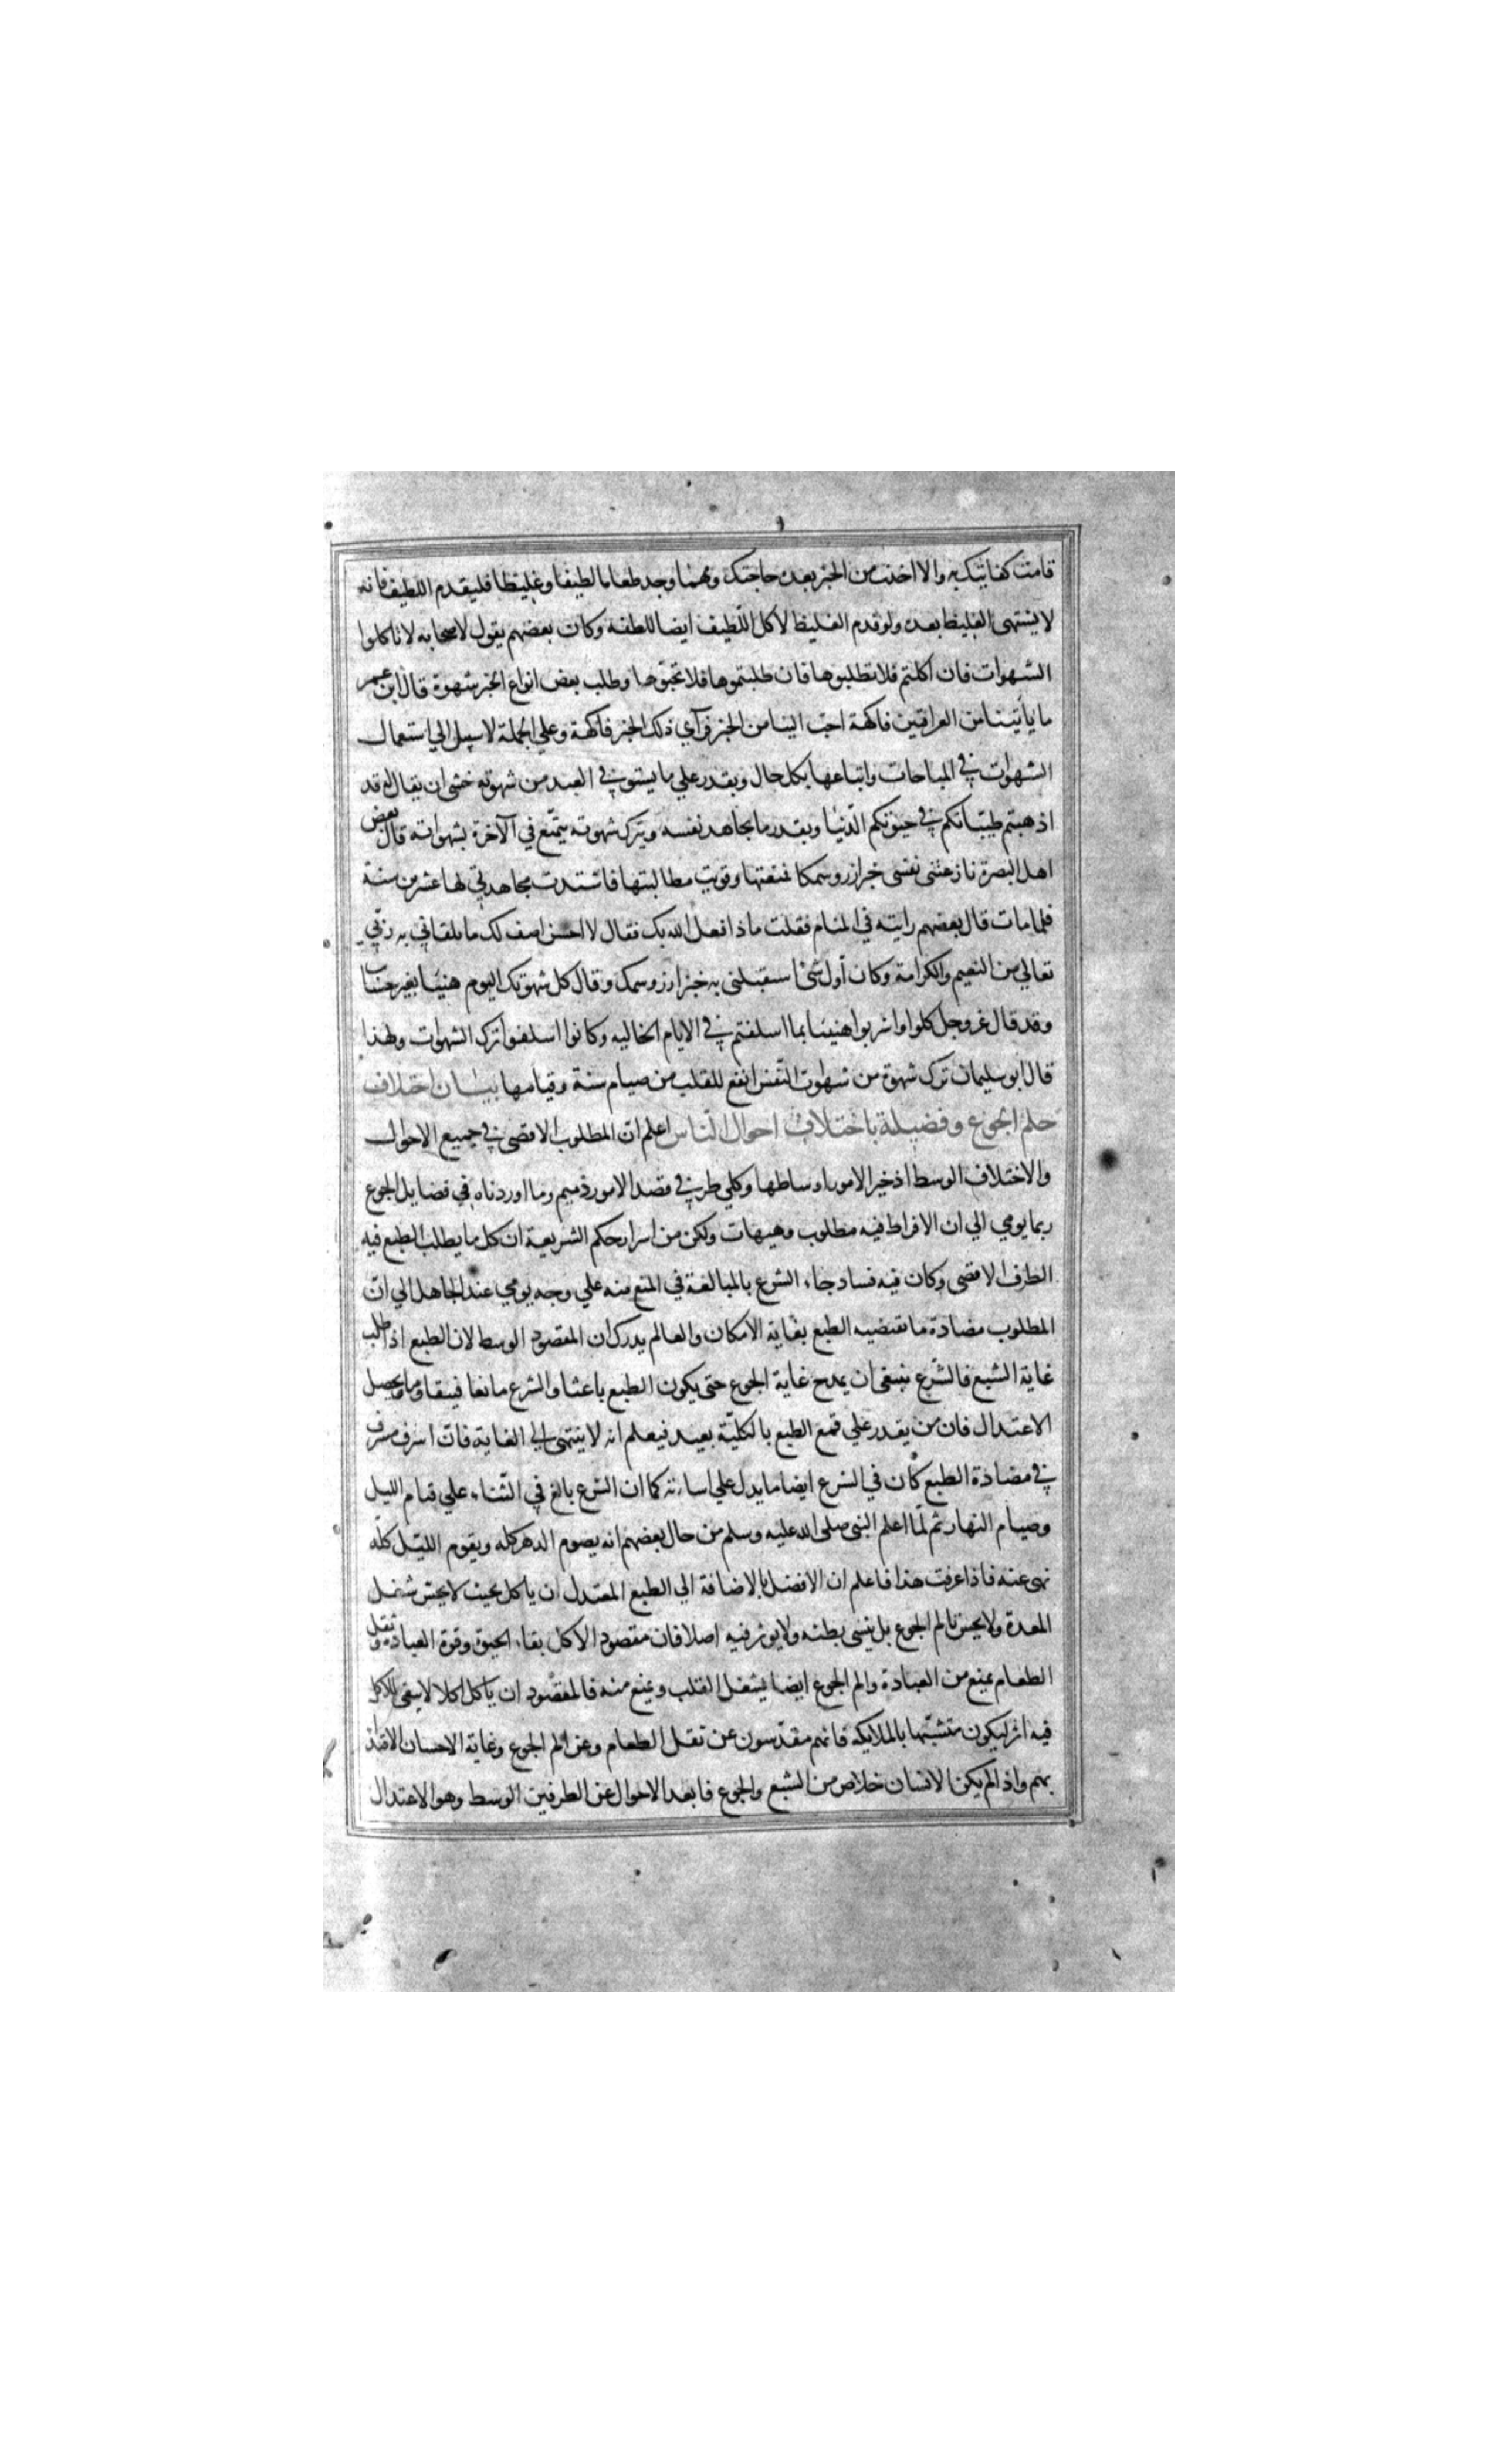 قامت كفايتك به والا اخذت من الخبز بعده حاجتك ومهما وجد طعاما لطيفا وغليظا فليقدم اللطيف فانه
لا يشتهي الغليظ بعده ولو قدم الغليظ لاكل اللطيف ايضا للطفه وكان بعضهم يقول لاصحابه لا تاكلوا
الشهوات فان اكلتم فلا تطلبوها فان طلبتموها فلا تحبوها وطلب بعض انواع الخبز شهوة قال ابن عمر
ما ياتينا من العراقين فاكهة احب الينا من الخبز فرآي ذلك الخبز فاكهة وعلي الجملة لا سبيل الي استعمال
الشهوات في المباحات واتباعها بكل حال وبقدر علي ما يستوفي العبد من شهوته خشي ان يقال له قد
اذهبتم طيباتكم في حيوتكم الدنيا وبقدر ما يجاهد نفسه ويترك شهوته يتمتع في الآخرة بشهواته قال بعض
اهل البصرة نازعتني نفسي خبز ارز وسمكا فمنعتها وقويت مطالبتها فاشتدت مجاهدتي لها عشرين سنة
فلما مات قال بعضهم رايته في المنام فقلت ماذا فعل الله بك فقال لا احسن اصف لك ما يلقاني به ربي
تعالي من النعيم والكرامة وكان أول شئ استقبلني به خبز ارز وسمك وقال كل شهوتك اليوم هنيئا بغير حساب
وقد قال عز وجل كلوا واشربوا هنيئا بما اسلفتم في الايام الخاليه وكانوا اسلفوا ترك الشهوات ولهذا
قال ابو سليمان ترك شهوة من شهوات النفس انفع للقلب من صيام سنة وقيامها بيان اختلاف
حلم الجوع وفضيلة باختلاف احوال الناس اعلم ان المطلوب الاقصي في جميع الاحوال
والاختلاف الوسط اذ خير الامور اوساطها وكلي طرفي قصد الامور ذميم وما اوردناه في فضايل الجوع
ربما يومي الي ان الافراط فيه مطلوب وهيهات ولكن من اسرار حكم الشريعة ان كل ما يطلب الطبع فيه
الطرف الاقصي وكان فيه فساد جاء الشرع بالمبالغة في المنع منه علي وجه يومي عند الجاهل الي ان
المطلوب مضادة ما تقتضيه الطبع بغاية الامكان والعالم يدرك ان المقصود الوسط لان الطبع اذا طلب
غاية الشبع فالشرع ينبغي ان يمدح غاية الجوع حتي يكون الطبع باعثا والشرع مانعا فيتقاوما ويحصل
الاعتدال فان من يقدر علي قمع الطبع بالكلية بعيد فيعلم انه لا ينتهي الي الغاية فان اسرف مسرف
في مضادة الطبع كان في الشرع ايضا ما يدل علي اسائته كما ان الشرع بالغ في الثناء علي قيام الليل
وصيام النهار ثم لما اعلم النبي صلى الله عليه وسلم من حال بعضهم انه يصوم الدهر كله ويقوم الليل كله
نهي عنه فاذا عرفت هذا فاعلم ان الافضل بالاضافة الي الطبع المعتدل ان ياكل بحيث لا يحس شغل
المعدة ولا يحس بالم الجوع بل ينسي بطنه ولا يوثر فيه اصلا فان مقصود الاكل بقاء الحيوة وقوة العبادة وثقل
الطعام يمنع من العبادة والم الجوع ايضا يشغل القلب ويمنع منه فالمقصود ان ياكل اكلا لا يبقي للاكل
فيه اثر ليكون متشبها بالملايكه فانهم مقدسون عن ثقل الطعام وعن الم الجوع وغاية الاحسان الاقتداء
بهم واذا لم يكن للانسان خلاص من الشبع والجوع فابعد الاحوال عن الطرفين الوسط وهو الاعتدال